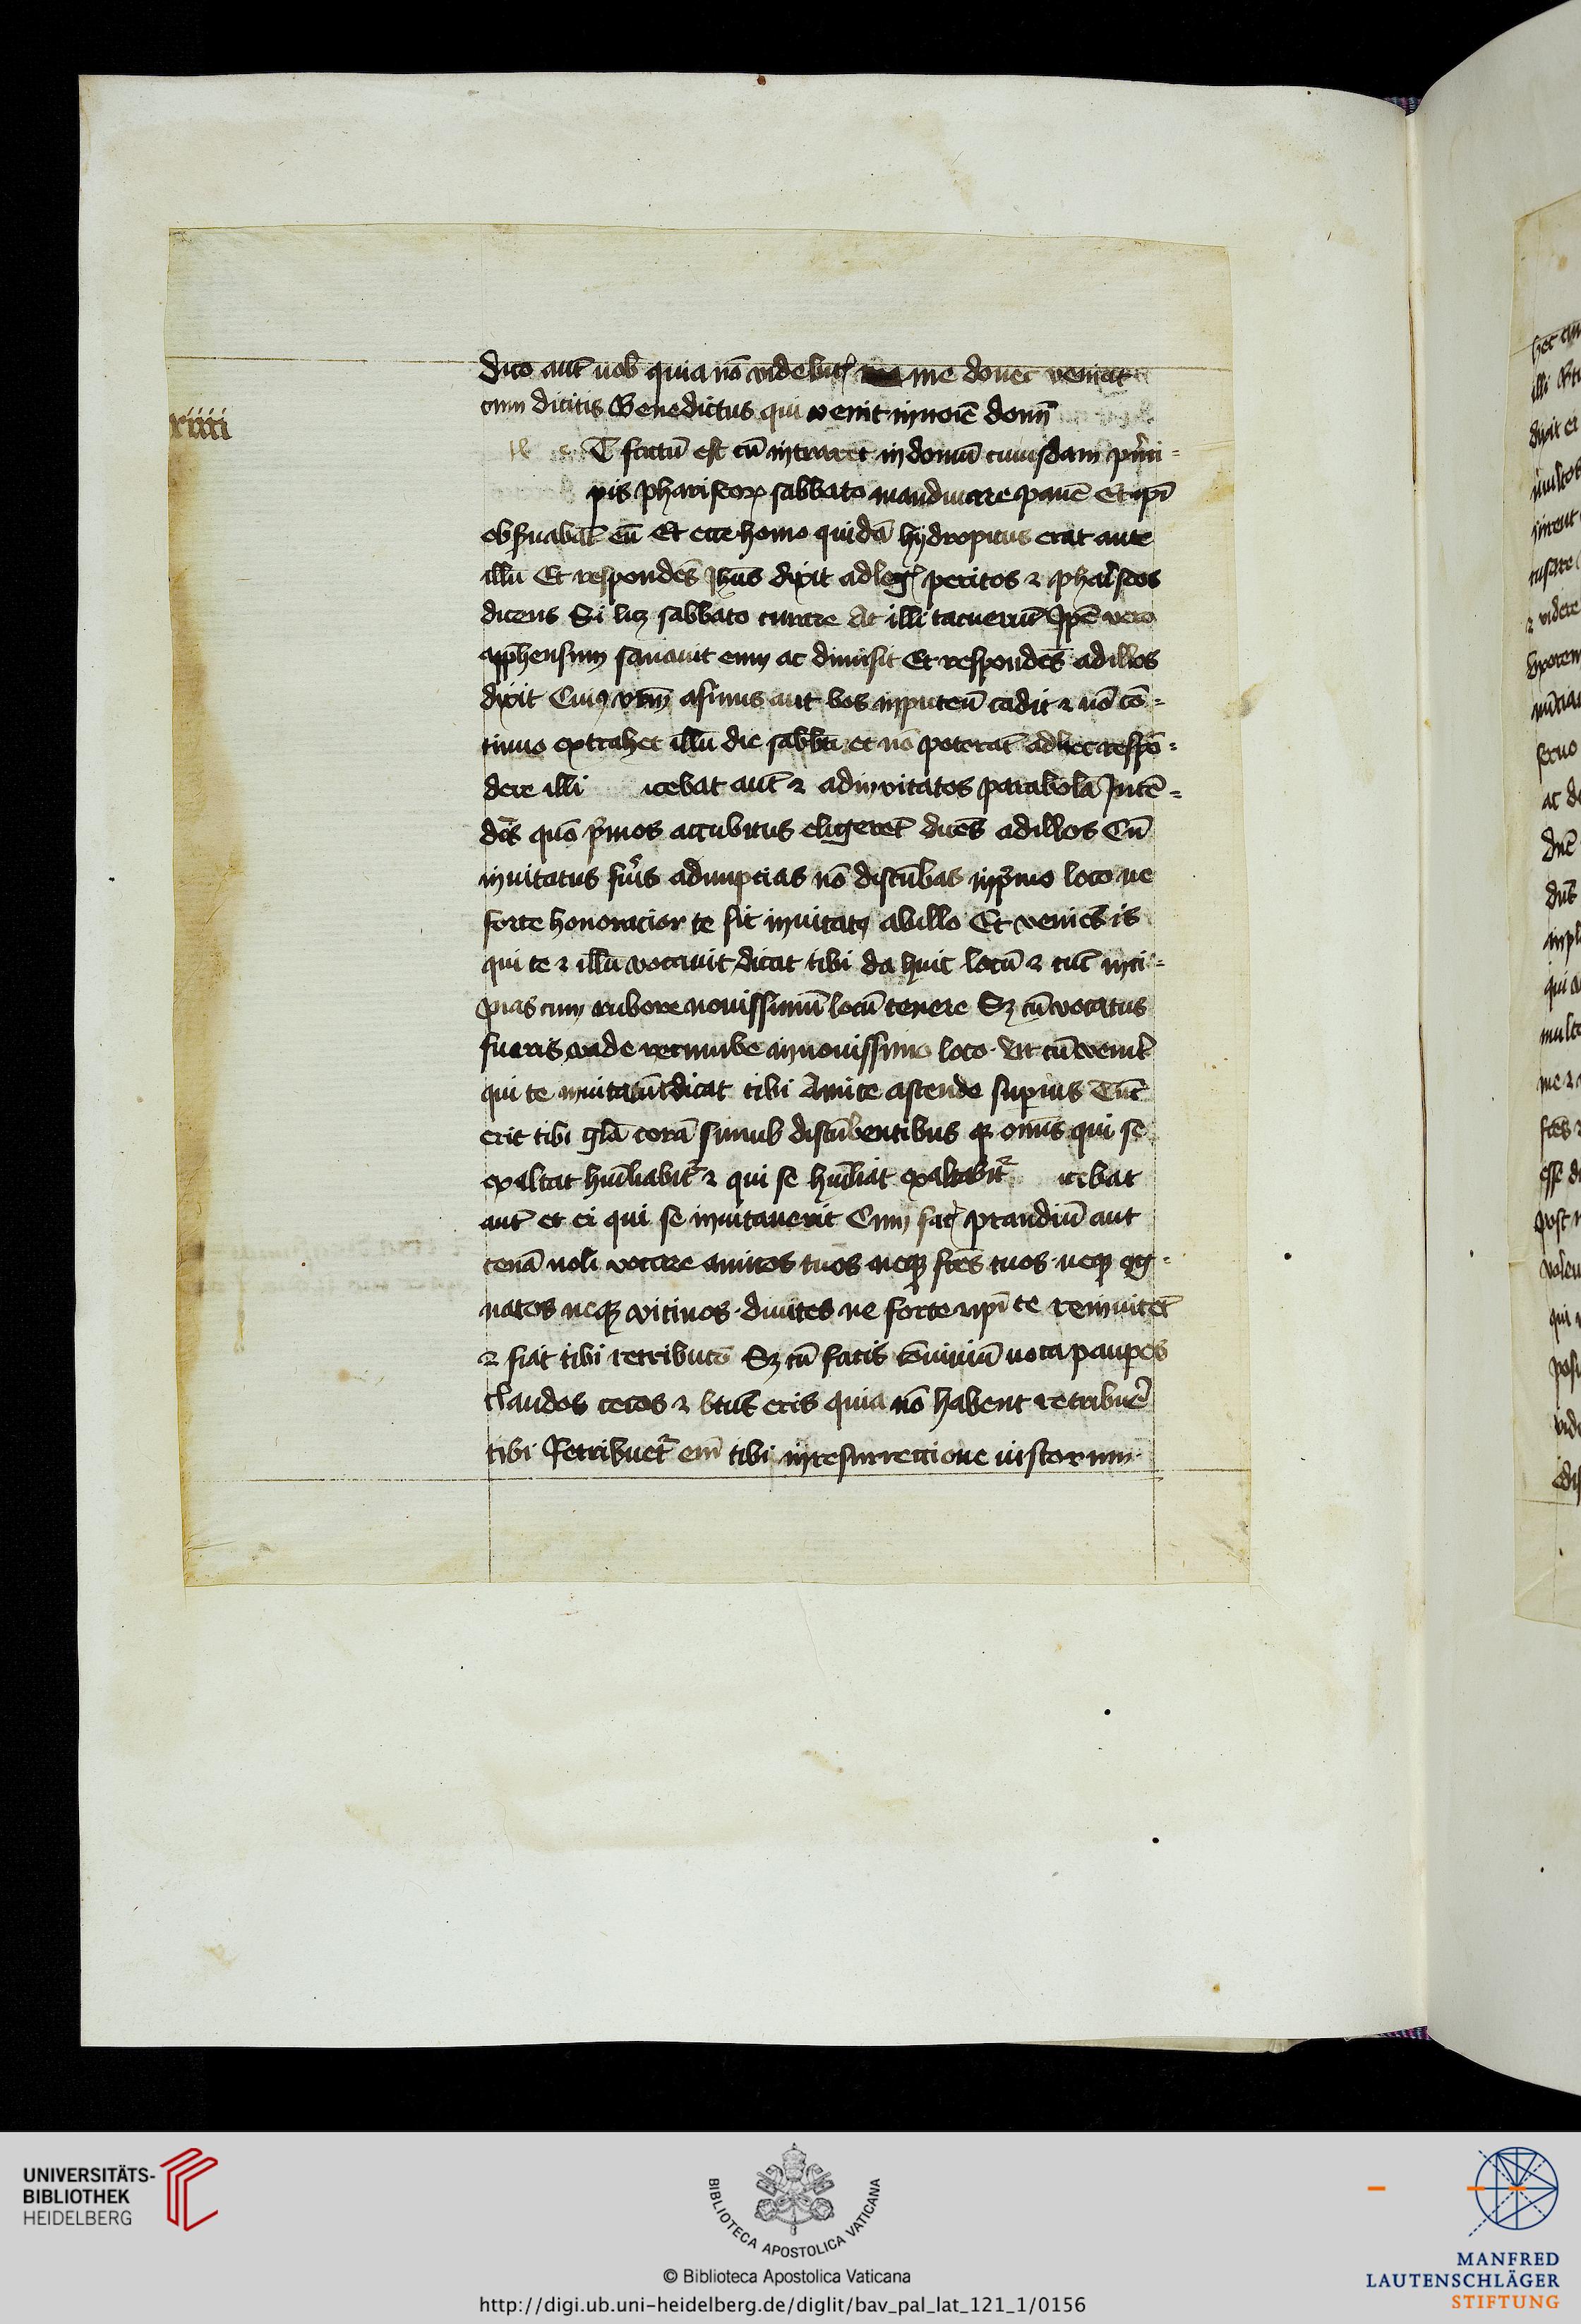 xiiii
dico aut̄ uob̄ quia nō videbitꝭ me donec veniat
cum dicitis Benedictus qui venit in noīe domī
T factū est cū intraret in domū cuiusdam prīci=
pis phariseoꝝ sabbato manducare panē Et ip̄i
obseruabāt eū Et ecce homo quidā hydropicus erat ante
illū Et respondēs Jhūs dixit ad legꝭ peritos ⁊ phariseos
dicens Si licꝫ sabbato curare At illi tacuerūt Ip̄e vero
app̄hensum sanauit eum ac dimisit Et respondēs ad illos
dixit Cuiꝯ vrm̄ asinus aut bos in puteū cadit ⁊ nō cō=
tinuo extrahet illū die sabb̄ti et nō poterāt ad hec respō=
dere illi icebat aut̄ ⁊ ad inuitatos parabolā Intē=
dēs quō p̄mos accubitus eligerēt dicēs ad illos Cū
inuitatus fu̓is ad nuptias nō discūbas in p̄mo loco ne
forte honoracior te sit inuitatꝯ ab illo Et veniēs is
qui te ⁊ illū vocauit dicat tibi da huic locū ⁊ tūc inci=
pias cum rubore nouissimū locū tenere Sꝫ cū vocatus
fueris vade recumbe in nouissimo loco. Ut cū venit̓
qui te inuitauit dicat tibi Amice ascende superius Tūc
erit tibi gl̄a corā simul discūbentibus qꝛ omīs qui se
exaltat hūiliabit̓ ⁊ qui se hūiliat exaltabit̓ icebat
aut̄ et ei qui se inuitauerit Cum facꝭ prandiū aut
cenā noli vocare amicos tuos neqꝫ fr̄es tuos neqꝫ ꝯg=
natos neqꝫ vicinos. diuites ne forte ⁊ ip̄i te reinuitēt
⁊ fiat tibi retribucō Sꝫ cū facis ꝯuiuiū uoca paup̲es
claudos cecos ⁊ btūs eris quia nō habent retribuer̓
tibi Retribuet̓ em̄ tibi in resurrectione iustorum
UNIVERSITÄTS-
BIBLIOTHEK
HEIDELBERG
BIBLIOTECA APOSTOLICA VATICANA
© Biblioteca Apostolica Vaticana
http://digi.ub.uni-heidelberg.de/diglit/bav_pal_lat_121_1/0156
MANFRED
LAUTENSCHLÄGER
STIFTUNG